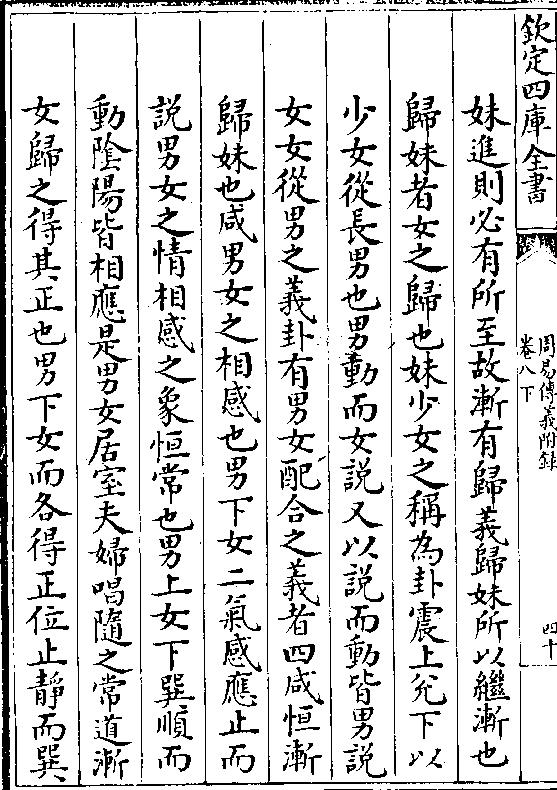 欽定四庫全書
周易傳義附録
卷八下
四十
妹進則必有所至故漸有歸義歸妹所以繼漸也
歸妹者女之歸也妹少女之稱為卦震上兌下以
少女從長男也男動而女說又以說而動皆男說
女女從男之義卦有男女配合之義者四咸恒漸
歸妹也咸男女之相感也男下女二氣感應止而
說男女之情相感之象恒常也男上女下巽順而
動陰陽皆相應是男女居室夫婦唱隨之常道漸
女歸之得其正也男下女而各得正位止靜而巽